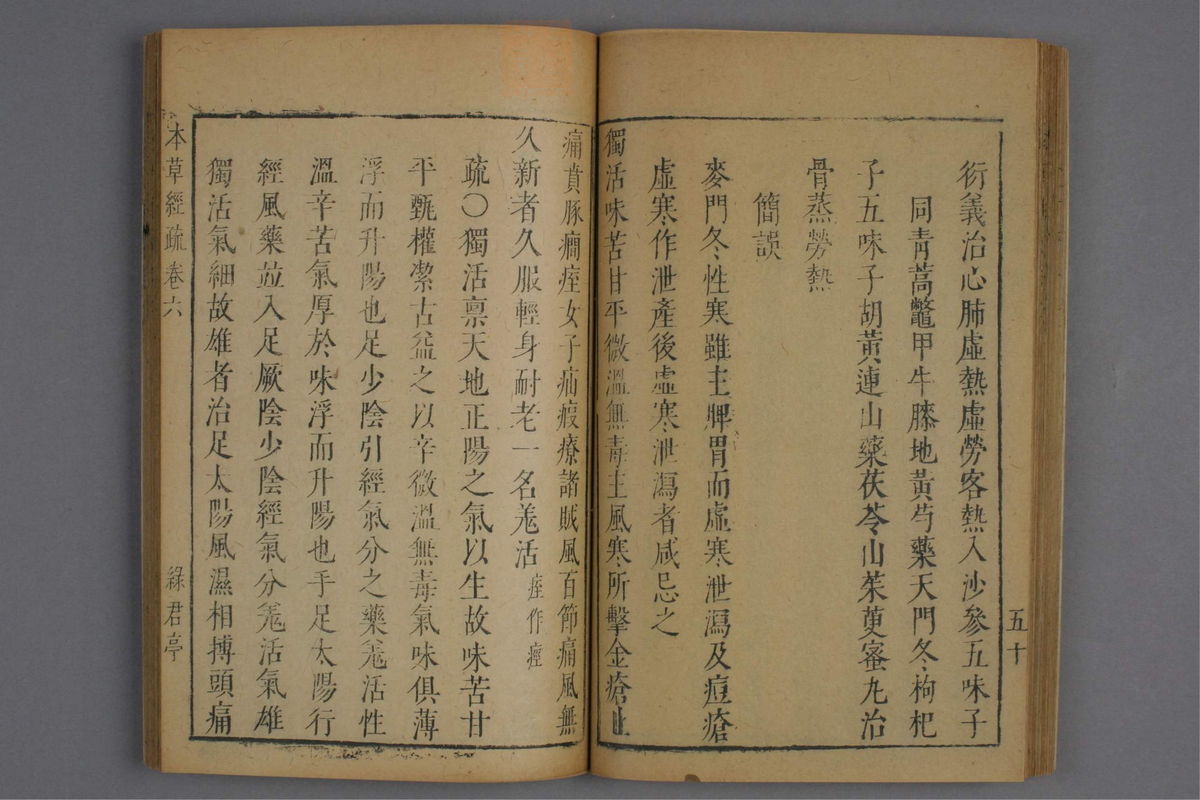 五十
衍義治心肺虛熱虛勞客熱入沙參五味子
同青蒿鼈甲牛膝地黃芍藥天門冬枸杞
子五味子胡黃連山藥茯苓山茱萸蜜丸治
骨蒸勞熱
簡誤
麥門冬性寒雖主脾胃而虛寒泄瀉及痘瘡
虛寒作泄產後虛寒泄瀉者咸忌之
獨活味苦甘平微溫無毒主風寒所擊金瘡止
痛賁豚癎痓女子疝瘕療諸賊風百節痛風無
久新者久服輕身耐老一名羗活 痓作痙
疏〇獨活禀天地正陽之氣以生故味苦甘
平甄權潔古益之以辛微溫無毒氣味俱薄
浮而升陽也足少陰引經氣分之藥羗活性
溫辛苦氣厚於味浮而升陽也手足太陽行
經風藥並入足厥陰少陰經氣分羗活氣雄
獨活氣細故雄者治足太陽風濕相搏頭痛
本草經疏卷六
綠君亭